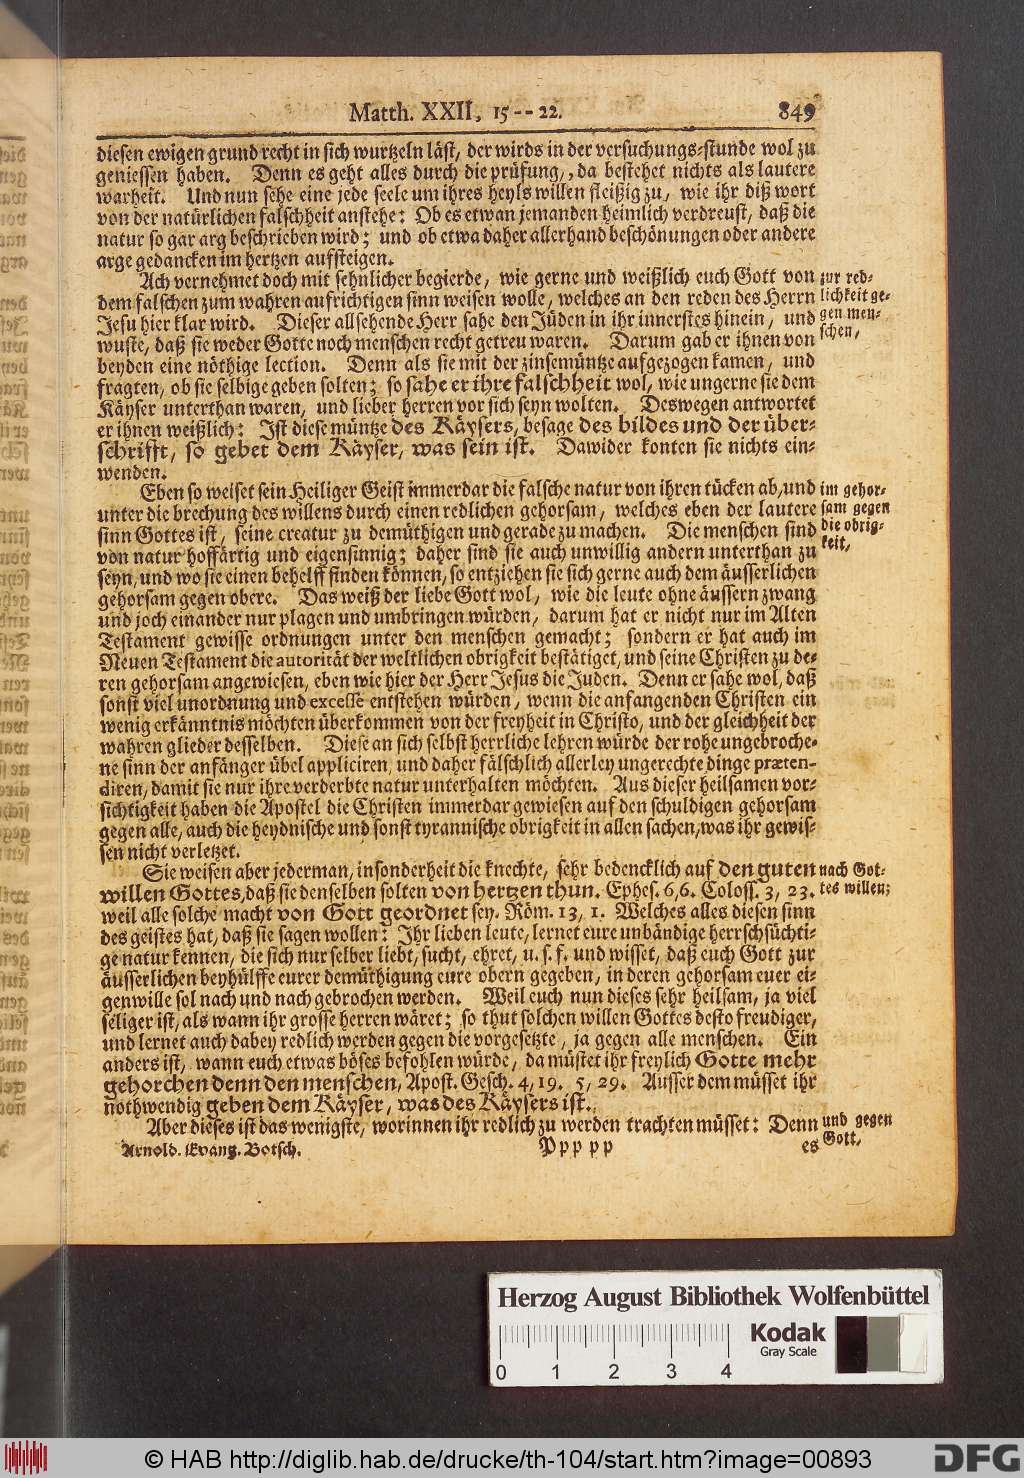 Matth. XXII, 15 -- 22. 849
diesen ewigen grund recht in sich wurtzeln läst, der wirds in der versuchungs-stunde wol zu
geniessen haben. Denn es geht alles durch die prüfung,, da bestehet nichts als lautere
warheit. Und nun sehe eine jede seele um ihres heyls willen fleißig zu, wie ihr diß wort
von der natürlichen falschheit anstehe: Ob es etwan jemanden heimlich verdreust, daß die
natur so gar arg beschrieben wird; und ob etwa daher allerhand beschönungen oder andere
arge gedancken im hertzen aufsteigen.
Ach vernehmet doch mit sehnlicher begierde, wie gerne und weißlich euch Gott von
dem falschen zum wahren aufrichtigen sinn weisen wolle, welches an den reden des Herrn
Jesu hier klar wird. Dieser allsehende Herr sahe den Jüden in ihr innerstes hinein, und
wuste, daß sie weder Gotte noch menschen recht getreu waren. Darum gab er ihnen von
beyden eine nöthige lection. Denn als sie mit der zinsemüntze aufgezogen kamen, und
fragten, ob sie selbige geben solten; so sahe er ihre falschheit wol, wie ungerne sie dem
Käyser unterthan waren, und lieber herren vor sich seyn wolten. Deswegen antwortet
er ihnen weißlich: Ist diese müntze des Käysers, besage des bildes und der über-
schrifft, so gebet dem Käyser, was sein ist. Dawider konten sie nichts ein-
wenden.
zur red-
lichkeit ge-
gen men-
schen,
Eben so weiset sein Heiliger Geist immerdar die falsche natur von ihren tücken ab, und
unter die brechung des willens durch einen redlichen gehorsam, welches eben der lautere
sinn Gottes ist, seine creatur zu demüthigen und gerade zu machen. Die menschen sind
von natur hoffärtig und eigensinnig; daher sind sie auch unwillig andern unterthan zu
seyn, und wo sie einen behelff finden können, so entziehen sie sich gerne auch dem äusserlichen
gehorsam gegen obere. Das weiß der liebe Gott wol, wie die leute ohne äussern zwang
und joch einander nur plagen und umbringen würden, darum hat er nicht nur im Alten
Testament gewisse ordnungen unter den menschen gemacht; sondern er hat auch im
Neuen Testament die autorität der weltlichen obrigkeit bestätiget, und seine Christen zu de-
ren gehorsam angewiesen, eben wie hier der Herr Jesus die Juden. Denn er sahe wol, daß
sonst viel unordnung und excesse entstehen würden, wenn die anfangenden Christen ein
wenig erkänntnis möchten überkommen von der freyheit in Christo, und der gleichheit der
wahren glieder desselben. Diese an sich selbst herrliche lehren würde der rohe ungebroche-
ne sinn der anfänger übel appliciren, und daher fälschlich allerley ungerechte dinge præten-
diren, damit sie nur ihre verderbte natur unterhalten möchten. Aus dieser heilsamen vor-
sichtigkeit haben die Apostel die Christen immerdar gewiesen auf den schuldigen gehorsam
gegen alle, auch die heydnische und sonst tyrannische obrigkeit in allen sachen, was ihr gewis-
sen nicht verletzet.
im gehor-
sam gegen
die obrig-
keit,
Sie weisen aber jederman, insonderheit die knechte, sehr bedencklich auf den guten
willen Gottes, daß sie denselben solten von hertzen thun. Ephes. 6, 6. Coloss. 3, 23.
weil alle solche macht von Gott geordnet sey. Röm. 13, 1. Welches alles diesen sinn
des geistes hat, daß sie sagen wollen: Ihr lieben leute, lernet eure unbändige herrschsüchti-
ge natur kennen, die sich nur selber liebt, sucht, ehret, u. s. f. und wisset, daß euch Gott zur
äusserlichen beyhülffe eurer demüthigung eure obern gegeben, in deren gehorsam euer ei-
genwille sol nach und nach gebrochen werden. Weil euch nun dieses sehr heilsam, ja viel
seliger ist, als wann ihr grosse herren wäret; so thut solchen willen Gottes desto freudiger,
und lernet auch dabey redlich werden gegen die vorgesetzte, ja gegen alle menschen. Ein
anders ist, wann euch etwas böses befohlen würde, da müstet ihr freylich Gotte mehr
gehorchen denn den menschen, Apost. Gesch. 4, 19. 5, 29. Ausser dem müsset ihr
nothwendig geben dem Käyser, was des Käysers ist.
nach Got-
tes willen;
Aber dieses ist das wenigste, worinnen ihr redlich zu werden trachten müsset: Denn
und gegen
Gott,
Arnold. Evang. Botsch. Ppp pp es
Herzog August Bibliothek Wolfenbüttel
Kodak
Gray Scale
0 1 2 3 4
© HAB http://diglib.hab.de/drucke/th-104/start.htm?image=00893
DFG